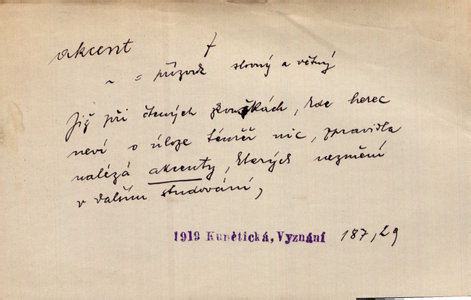 akcent 7
~ = přízvuk slovný a větný
Již při čtených zkouškách, kde herec
neví o úloze téměř nic, zpravidla
nalézá akcenty, kterých nezmění
v dalším studování,
1919 Kunětická, Vyznání 187,29